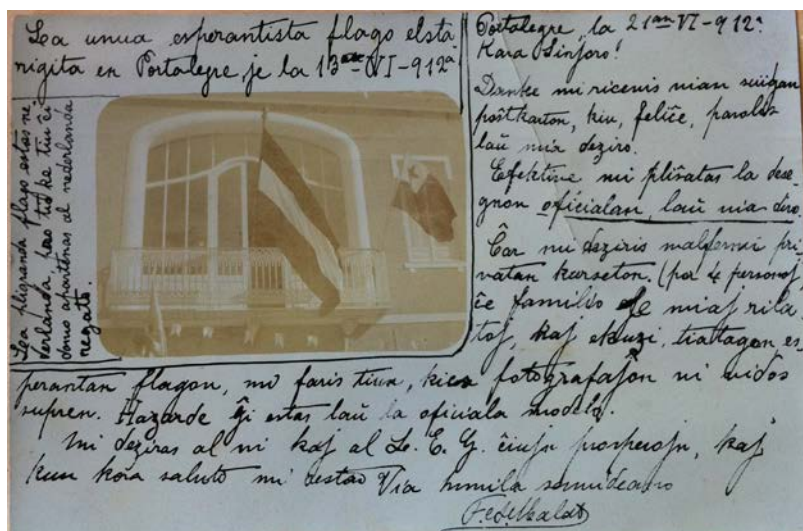 La unua esperantista flago elsta
nigita en Portalegre je la 13an-VI-912a
La pligranda flago estas ne
derlanda, pro tio ke tiu ĉi
domo apartenas al nederlanda
regato.
Portalegre, la 21an VI-912a
Kara Sinjoro!
Danke mi ricevis vian
poŝtkarton, kiu, feliĉe, parolas
laŭ mia deziro.
Efektive mi plivatas la dese
gnon oficialan, laŭ via diro.
Ĉar mi deziris malfermi pri
vatan kurseton (por 4 personoj
ĉe familio de miaj rila
toj, kaj ekuzi, tiutagon es
perantan flagon, mi faris tiun, kies fotografaĵon vi vidos
supren. Hazarde ĝi estas laŭ la oficiala modelo.
Mi deziras al vi kaj al L. E. G. ĉiujn prosperojn, kaj
kun kora saluto mi restas Via humila samideano